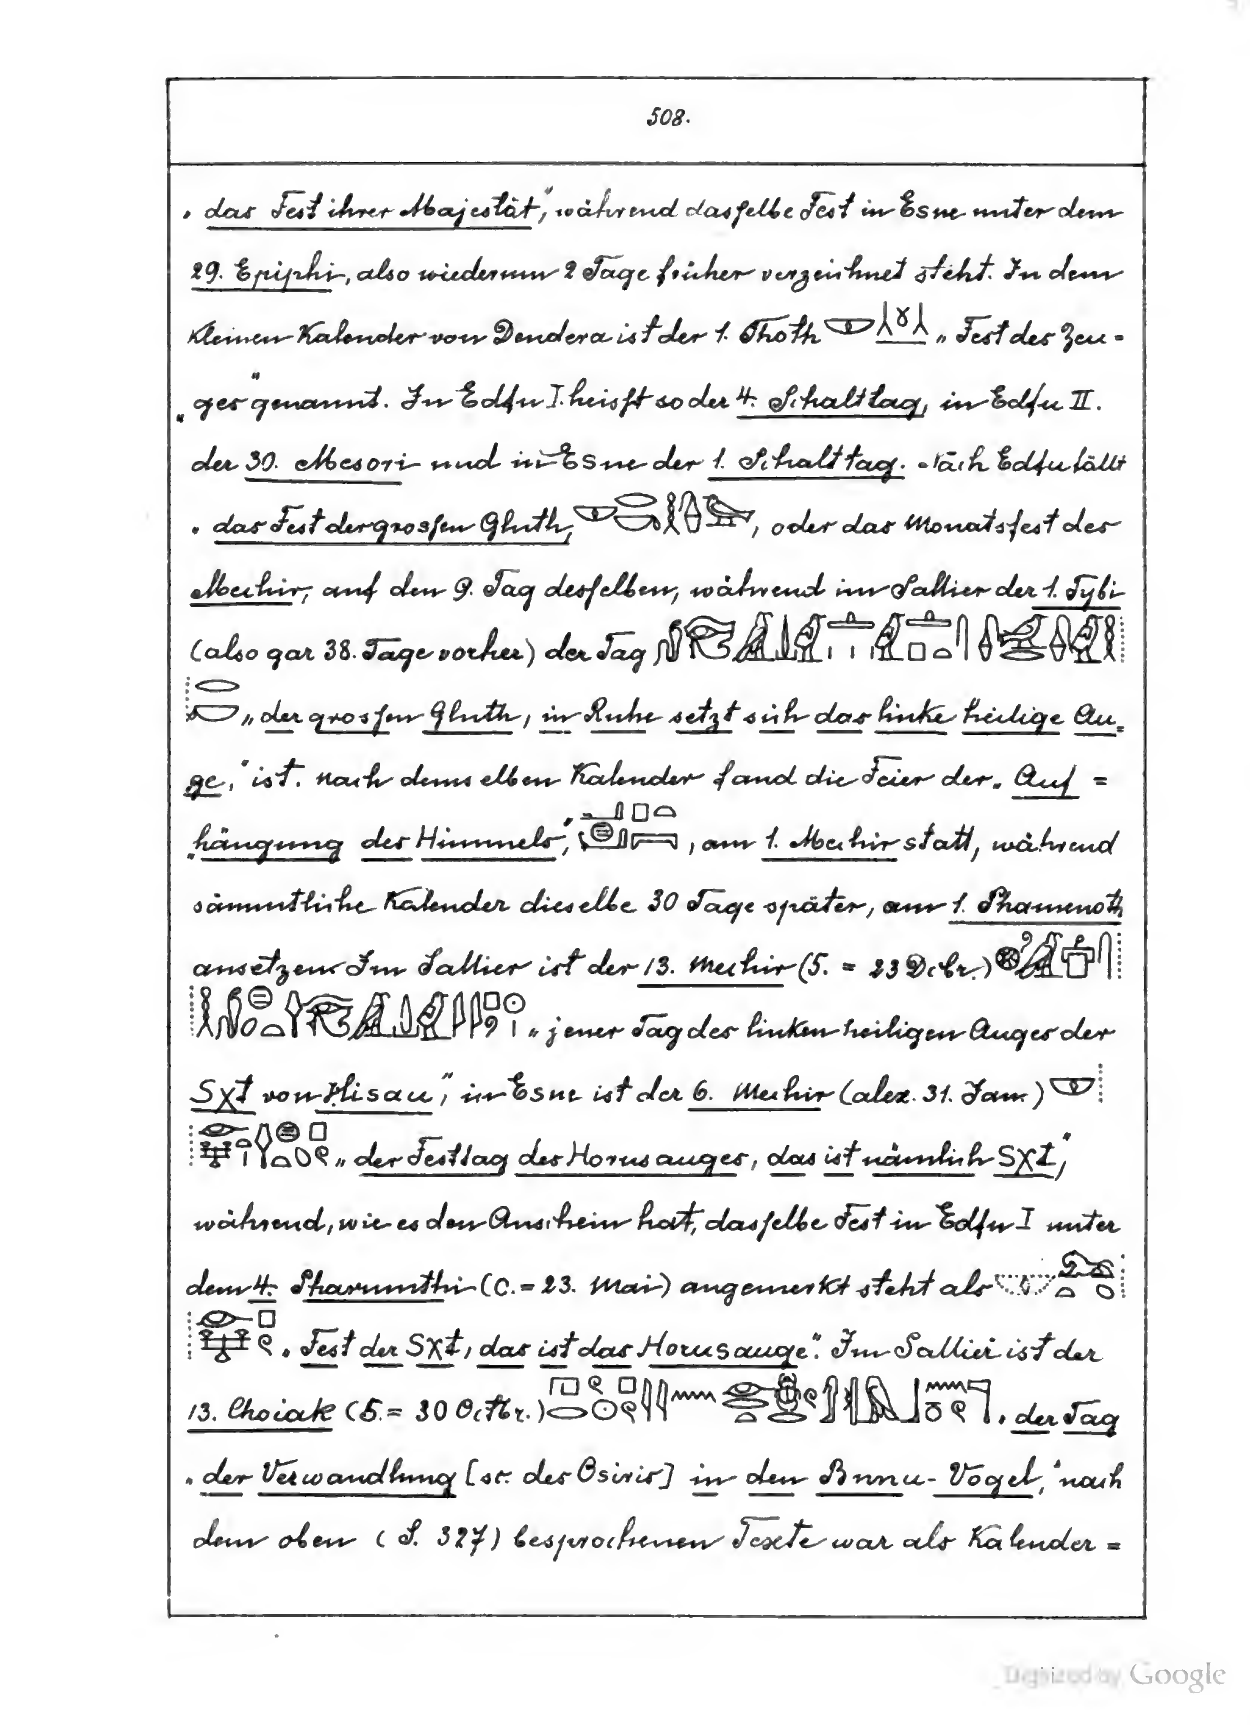 508.
„das Fest ihrer Majestät," während dasselbe Fest in Esne unter dem
29. Epiphi, also wiederum 2 Tage früher verzeichnet steht. In dem
kleinen Kalender von Dendera ist der 1. Thoth „Fest des Zeu=
„ges" genannt. In Edfu I. heisst so der 4. Schalttag, in Edfu II.
der 30. Mesori und in Esne der 1. Schalttag. Nach Edfu fällt
„das Fest der grossen Gluth, oder das Monatsfest des
Mechir, auf den 9. Tag desselben, während im Sallier der 1. Tybi
(also gar 38. Tage vorher) der Tag
„der grossen Gluth, in Ruhe setzt sich das linke heilige Au=
ge," ist. Nach demselben Kalender fand die Feier der „Auf=
„hängung des Himmels", am 1. Mechir statt, während
sämmtliche Kalender dieselbe 30 Tage später, am 1. Phamenoth
ansetzen. Im Sallier ist der 13. Mechir (S. = 23 Dcbr.)
„jener Tag des linken heiligen Auges der
Sχt von Hisau," in Esne ist der 6. Mechir (alex. 31. Jan.)
„der Festtag des Horusauges, das ist nämlich Sχt,"
während, wie es den Anschein hat, dasselbe Fest in Edfu I unter
dem 4. Pharmuthi (C. = 23. Mai) angemerkt steht als
„Fest der Sχt, das ist das Horusauge". Im Sallier ist der
13. Choiak (S. = 30 Octbr.) „der Tag
„der Verwandlung [sc. des Osiris] in den Bnnu-Vogel," nach
dem oben (S. 327) besprochenen Texte war als Kalender=
Digitized by Google